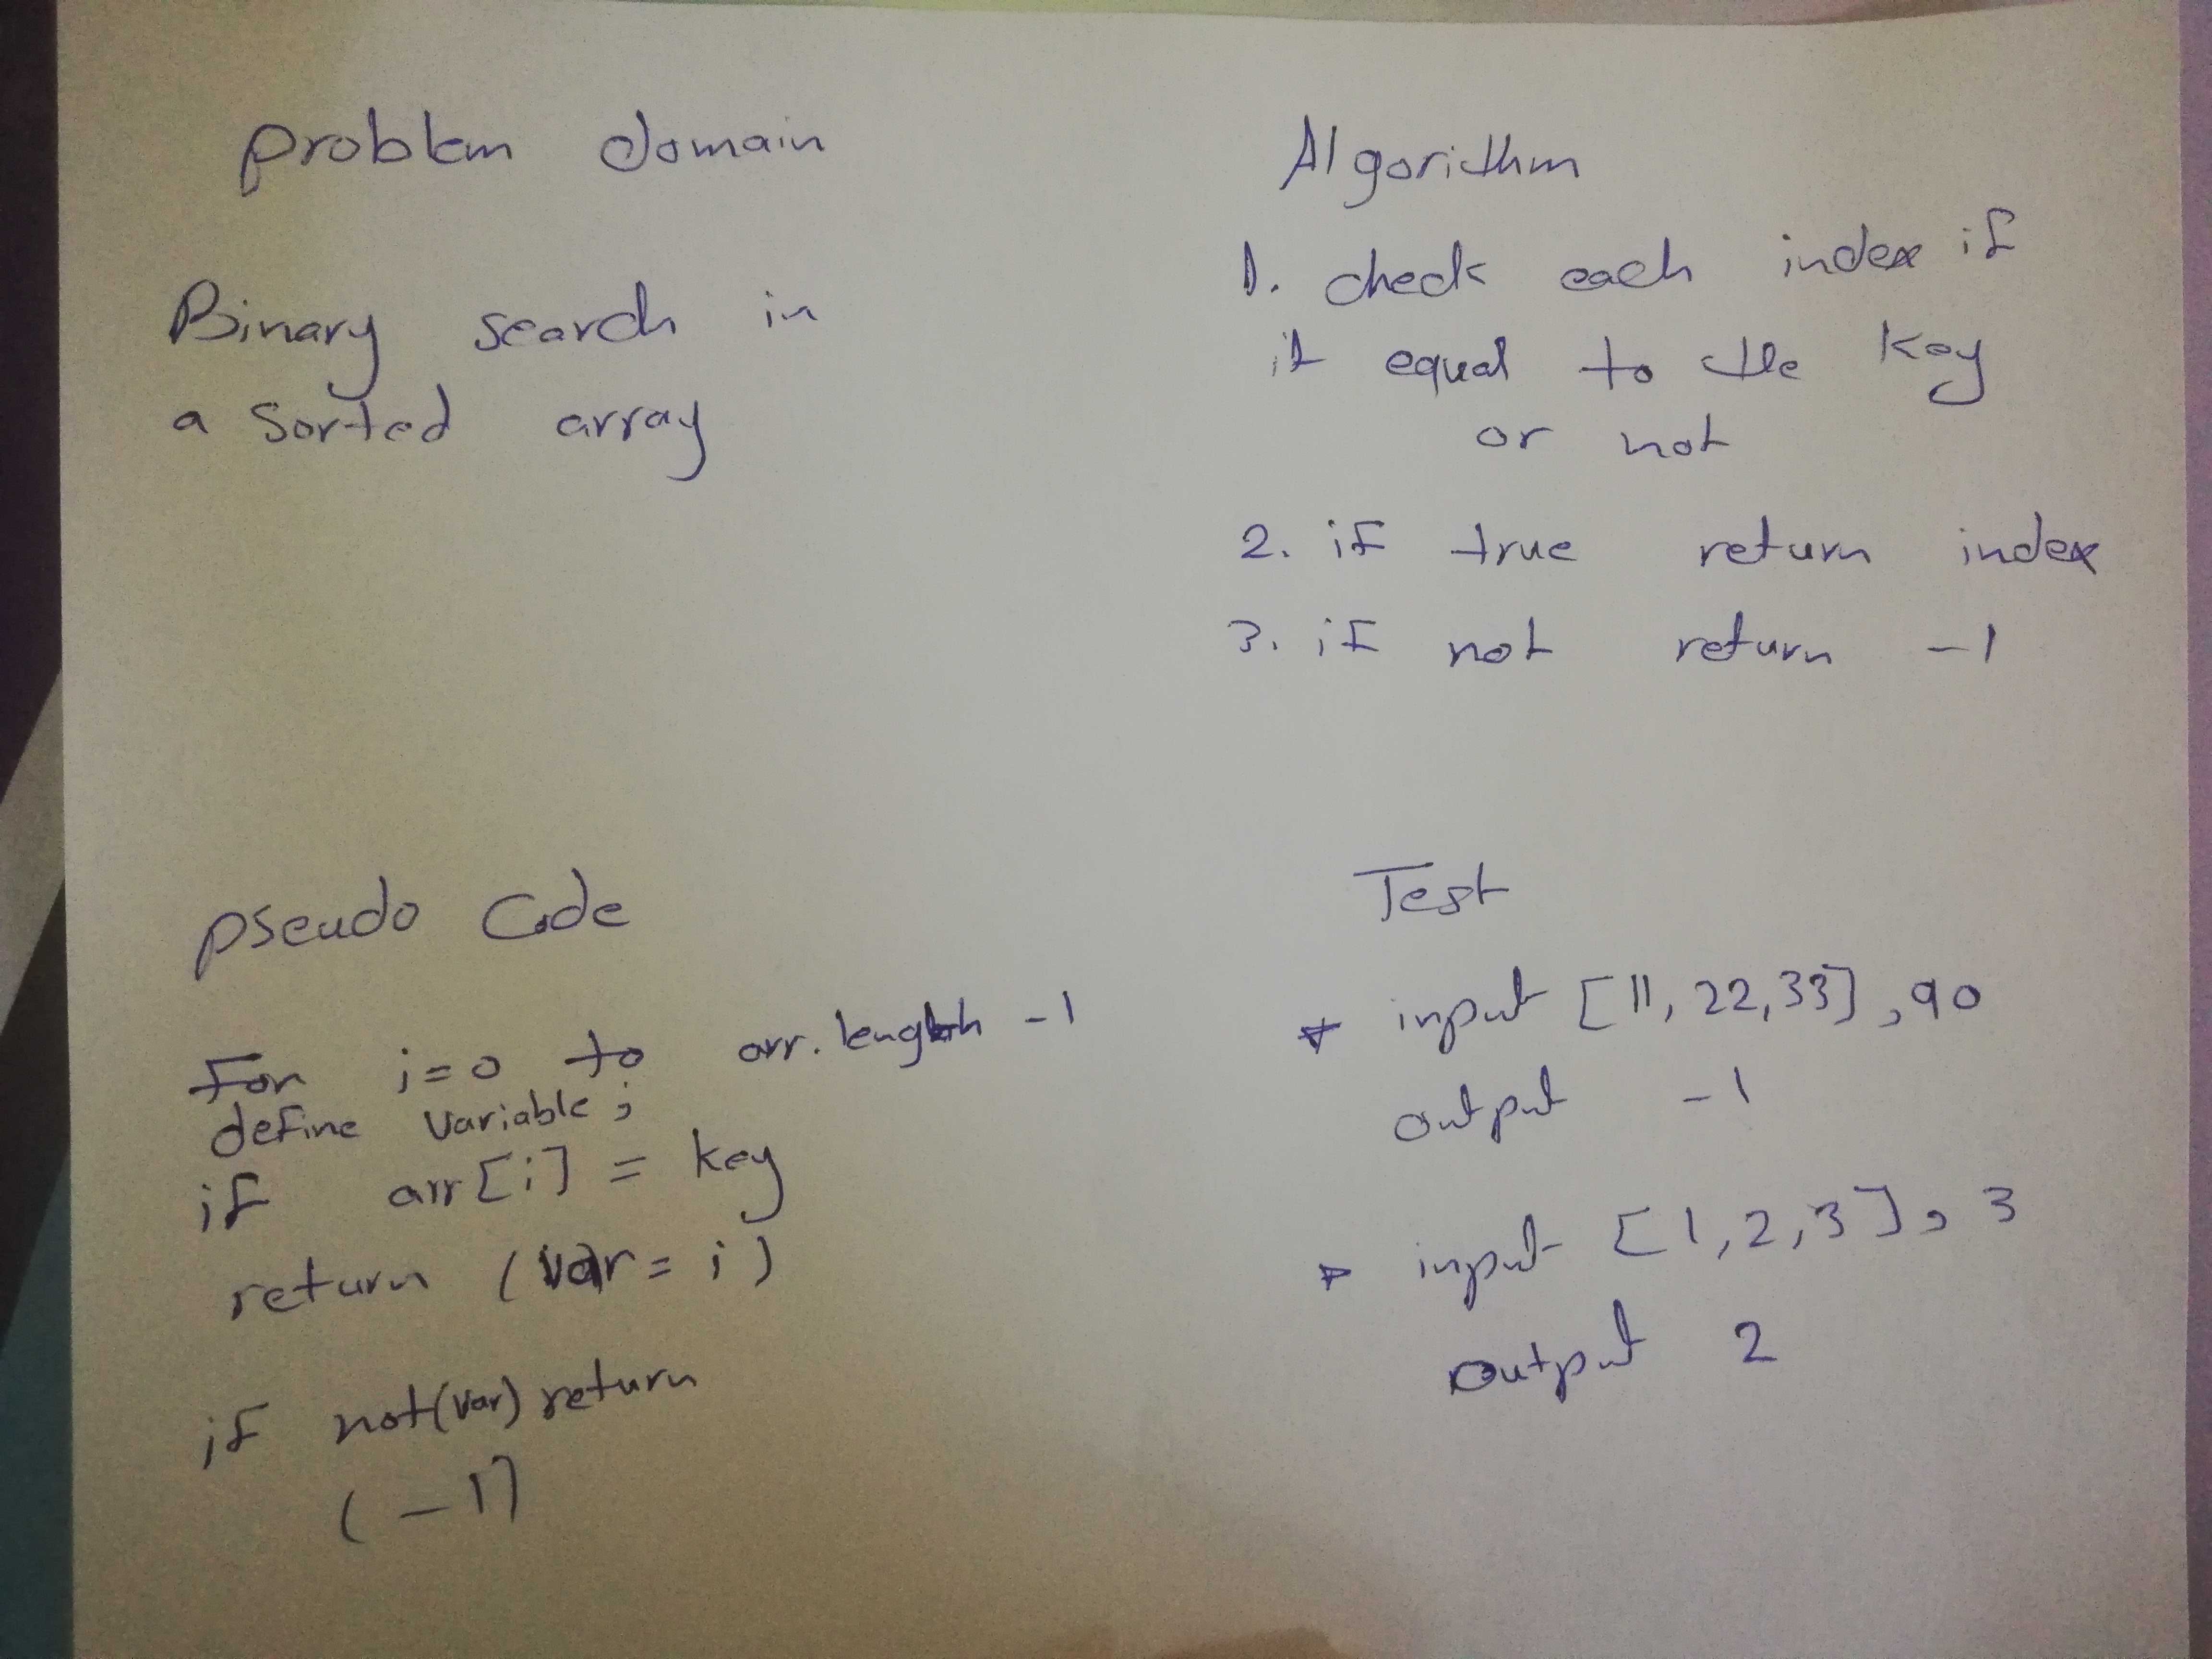 problem domain
Binary search in
a sorted array
Algorithm
1. check each index if
it equal to the key
or not
2. if true return index
3. if not return -1
pseudo Code
For i=0 to arr.length -1
define variable;
if arr[i] = key
return (var = i)
if not(var) return
(-1)
Test
* input [11,22,33],90
output -1
* input [1,2,3],3
output 2